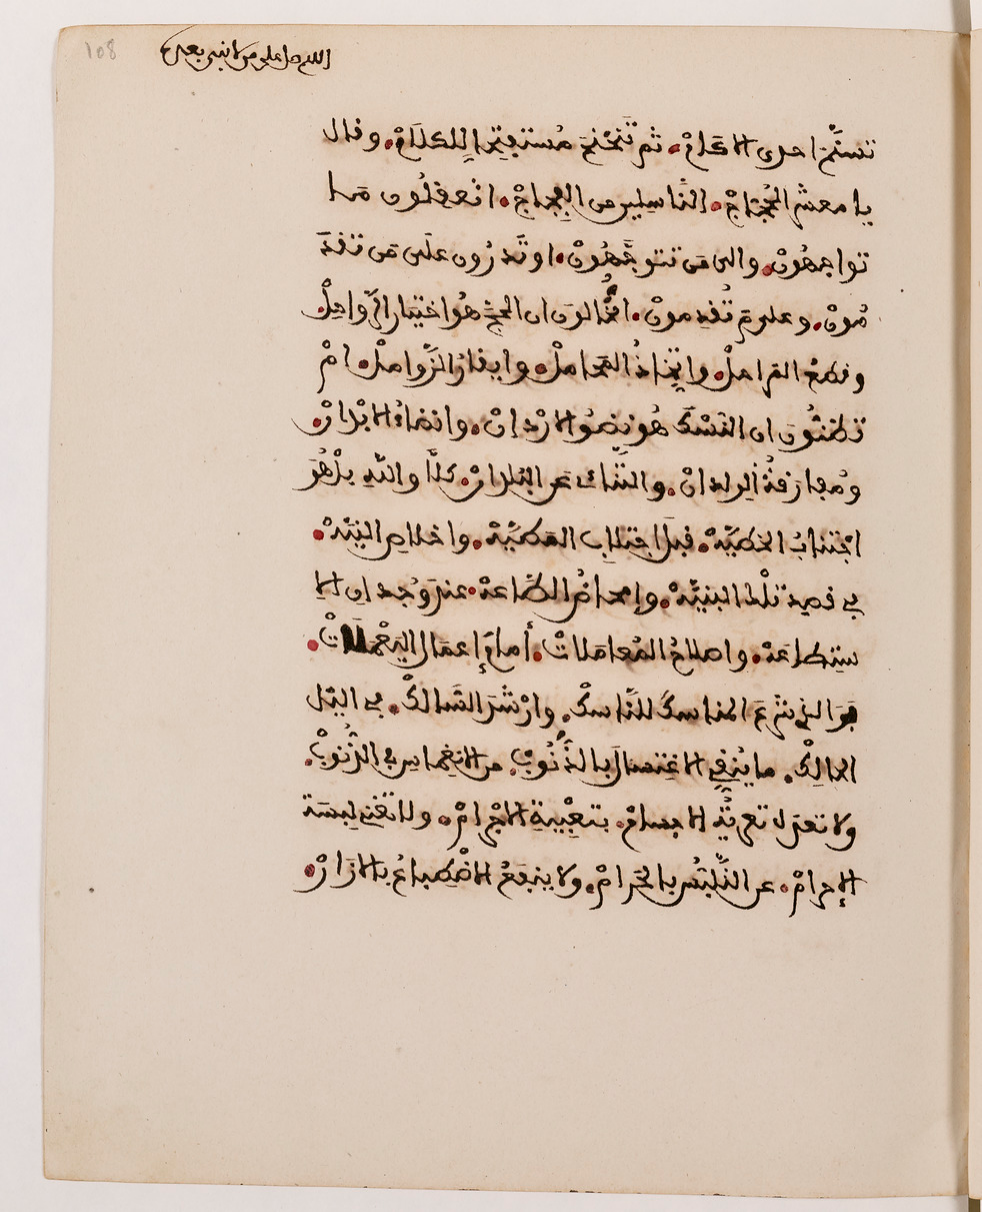 108
اللهم صل على من لا نبي بعده
تسنَّم احدى الاكامْ. ثم تَنَحْنَحَ مُستفتِحا للكلامْ. وقال
يا معشر الحُجّاجْ. النّاسلين من الفِجاجْ. اتعقلُون مَا
تواجهُونْ. والى مَن تتوجَّهُونْ. اوتَدرُون علَى مَن تقدَ
مُونْ. وعلى مَ تُقدِمونْ. اتخَالونَ ان الحجَّ هُو اختيار الرّواحِلْ.
وقطعُ المراحلْ. واتِّخاذُ المَحاملْ. وايقارُ الزّواملْ. امْ
تظنُّونَ ان النسْكَ هُو نِضوُ الارْدانْ. وانضاءُ الابْدانْ.
ومُفارَقةُ الولدانْ. والتنَائ عن البُلدانْ. كلّا واللّهِ بلْ هُوَ
اجْتنابُ الخطيَّةْ. قبلَ اجتلاب المَطيَّةْ. واخلاص النيَّةْ.
في قصدِ تلْكَ البنيَّةْ. وإمحاضُ الطّاعةْ. عندَ وُجدانِ الا
ستطاعةْ. واصلاحُ المُعاملاتْ. أمامَ إعمَال اليعْملاتْ.
فوَالذي شرعَ المناسكَ للنّاسكْ. وارْشدَ السَّالكْ. في الليل
الحالِكْ. ما يُنقي الاغتسالُ بالذَّنُوبْ. من الانغِماسِ في الذّنوبْ.
ولا تعدل تعرِيَةُ الاجسامْ. بتعْبيةِ الاجْرامْ. ولا تغني لبسة
الإحرامْ. عن التلَبّسِ بالحَرامْ. ولا ينفَعُ الاضْطباعُ بالازارْ.